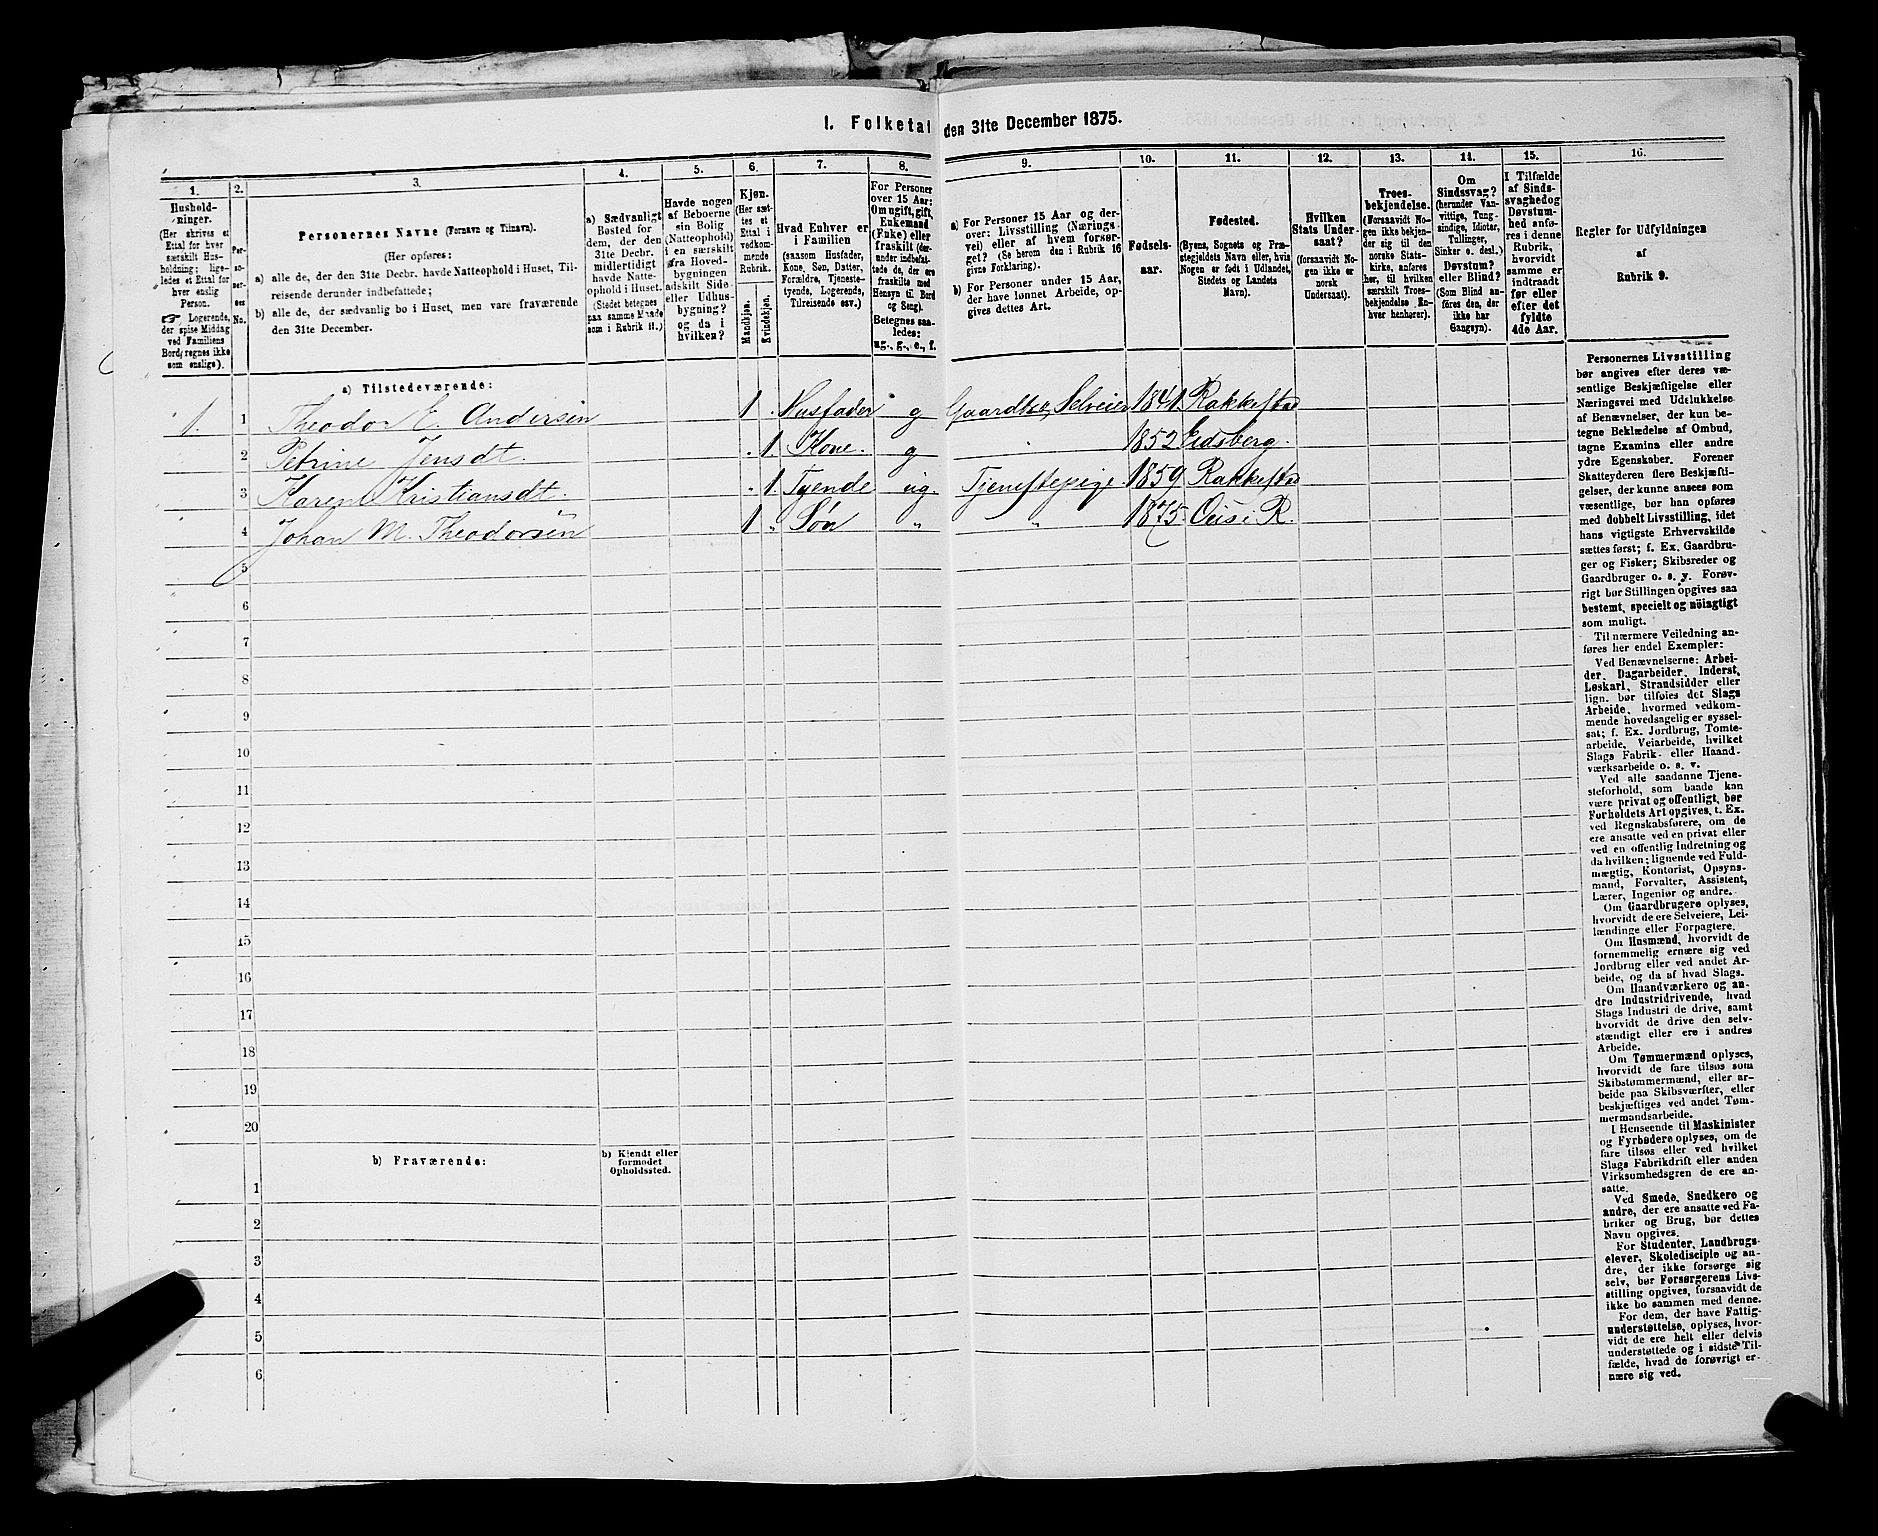 I. Folketal den 31te December 1875.
1.
2.
3.
4.
5.
6.
7.
8.
9.
10.
11.
12.
13.
14.
15.
16.
Hushold-
ninger.
(Her skrives et
Ettal for hver
særskilt Hus-
holdning; lige-
ledes et Ettal for
hver enslig
Person.
☞ Logerende,
der spise Middag
ved Familiens
Bord, regnes ikke
som enslige).
Per-
so-
ner-
nes
No.
Personernes Navne (Fornavn og Tilnavn).
(Her opføres:
a) alle de, der den 31te Decbr. havde Natteophold i Huset, Til-
reisende derunder indbefattede;
b) alle de, der sædvanlig bo i Huset, men vare fraværende
den 31te December.
a) Sædvanligt
Bosted for
dem, der den
31te Decbr.
midlertidigt
havde Natte-
ophold i Huset.
(Stedet betegnes
paa samme Maade
som i Rubrik 11.)
Havde nogen
af Beboerne
sin Bolig
(Natteophold)
i en særskilt
fra Hoved-
bygningen
adskilt Side-
eller Udhus-
bygning?
og da i
hvilken?
Kjøn.
(Her sæt-
tes et
Ettal i
vedkom-
mende
Rubrik.
Mandkjøn.
Kvindekjøn.
Hvad Enhver er
i Familien
(saasom Husfader,
Kone, Søn, Datter,
Forældre, Tjeneste-
tyende, Logerende,
Tilreisende osv.)
For Personer
over 15 Aar:
Om ugift, gift,
Enkemand
(Enke) eller
fraskilt (der-
under indbefat-
tede de, der ere
fraskilte med
Hensyn til Bord
og Seng).
Betegnes saa-
ledes:
ug., g., e., f.
a) For Personer 15 Aar og der-
over: Livsstilling (Nærings-
vei) eller af hvem forsør-
get? (Se herom den i Rubrik 16
givne Forklaring).
b) For Personer under 15 Aar,
der have lønnet Arbeide, op-
gives dettes Art.
Fødsels-
aar.
Fødested.
(Byens, Sognets og Præ-
stegjeldets Navn eller, hvis
Nogen er født i Udlandet,
Stedets og Landets
Navn).
Hvilken
Stats Under-
saat?
(forsaavidt No-
gen ikke er
norsk
Undersaat).
Troes-
bekjendelse.
(Forsaavidt No-
gen ikke bekjen-
der sig til den
norske Stats-
kirke, anføres
her, til hvilken
særskilt Troes-
bekjendelse En-
hver henhører).
Om
Sindssvag?
(herunder Van-
vittige, Tung-
sindige, Idioter,
Tullinger,
Sinker o. desl.)
Døvstum?
eller Blind?
(Som Blind an-
føres den, der
ikke har
Gangsyn).
I Tilfælde
af Sinds-
svaghed og
Døvstum-
hed anfø-
res i denne
Rubrik,
hvorvidt
samme er
indtraadt
før eller
efter det
fyldte
4de Aar.
Regler for Udfyldningen
af
Rubrik 9.
a) Tilstedeværende:
1. 1 Theodor E. Andersen 1 . Husfader g Gaardbr. Selveier 1841 Rakkestad
2 Petrine Jensdt. . 1 Kone g 1852 Eidsberg.
3 Karen Kristiansdt. . 1. Tyende ug. Tjenestepige. 1859 Rakkestad
4 Johan M. Theodorsen 1 „ Søn „ „ 1875 i R.
5
6
7
8
9
10
11
12
13
14
15
16
17
18
19
20
b) Fraværende:
b) Kjendt eller
formodet
Opholdssted.
1
2
3
4
5
6
Personernes Livsstilling
bør angives efter deres væ-
sentlige Beskjæftigelse eller
Næringsvei med Udelukkelse
af Benævnelser, der kun be-
tegne Beklædelse af Ombud,
tagne Examina eller andre
ydre Egenskaber. Forener
Skatteyderen flere Beskjæfti-
gelser, der kunne ansees som
væsentlige, bør han opføres
med dobbelt Livsstilling, idet
hans vigtigste Erhvervskilde
sættes først; f. Ex. Gaardbru-
ger og Fisker; Skibsreder og
Gaardbruger o. s. y. Forøv-
rigt bør Stillingen opgives saa
bestemt, specielt og nöiagtigt
som muligt.
Til nærmere Veiledning an-
føres her endel Exempler:
Ved Benævnelserne: Arbei-
der, Dagarbeider, Inderst,
Løskarl, Strandsidder eller
lign. bør tilføies det Slags
Arbeide, hvormed vedkom-
mende hovedsagelig er syssel-
sat; f. Ex. Jordbrug, Tomte-
arbeide, Veiarbeide, hvilket
Slags Fabrik- eller Haand-
værksarbeide o. s. v.
Ved alle saadanne Tjene-
steforhold, som baade kan
være privat og offentligt, bør
Forholdets Art opgives, t. Ex.
ved Regnskabsførere, om de
ere ansatte ved en privat eller
ved en offentlig Indretning og
da hvilken; lignende ved Fuld-
mægtig, Kontorist, Opsyns-
mand, Forvalter, Assistent,
Lærer, Ingeniør og andre.
Om Gaardbrugere oplyses,
hvorvidt de ere Selveiere, Lei-
lændinge eller Forpagtere.
Om Husmænd, hvorvidt de
fornemmelig ernære sig ved
Jordbrug eller ved andet Ar-
beide, og da af hvad Slags.
Om Haandværkere og an-
dre Industridrivende, hvad
Slags Industri de drive, samt
hvorvidt de drive den selv-
stændigt eller ere i andres
Arbeide.
Om Tømmermænd oplyses,
hvorvidt de fare tilsøs som
Skibstømmermænd, eller ar-
beide paa Skibsværfter, eller
beskjæftiges ved andet Tøm-
mermandsarbeide.
I Henseende til Maskinister
og Fyrbødere oplyses, om de
fare tilsøs eller ved hvilket
Slags Fabrikdrift eller anden
Virksomhedsgren de ere an-
satte.
Ved Smede, Snedkere og
andre, der ere ansatte ved Fa-
briker og Brug, bør dettes
Navn opgives.
For Studenter, Landbrugs-
elever, Skoledisciple og an-
dre, der ikke forsørge sig
selv, bør Forsørgerens Livs-
stilling opgives, forsaavidt de
ikke bo sammen med denne.
For dem, der have Fattig-
understøttelse, oplyses, hvor-
vidt de ere helt eller delvis
understøttede og i sidste Til-
fælde, hvad de forøvrigt er-
nære sig ved.